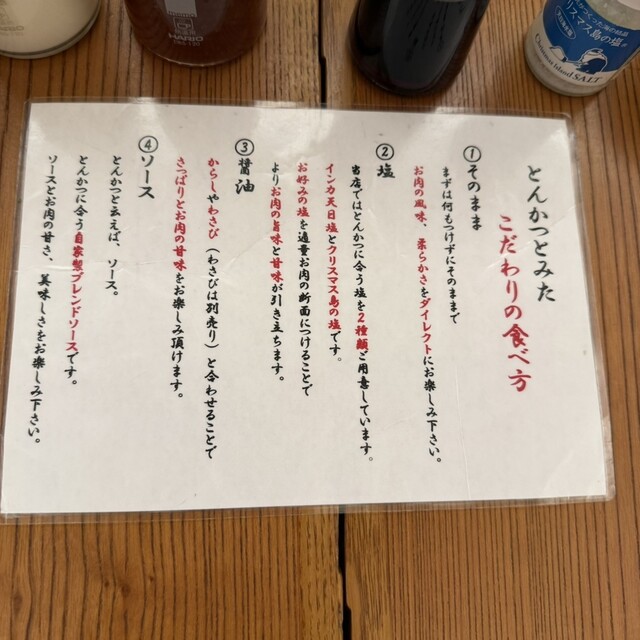 とんかつとみた
こだわりの食べ方
①そのまま
まずは何もつけずにそのままで
お肉の風味、柔らかさをダイレクトにお楽しみ下さい。
②塩
当店ではとんかつに合う塩を2種類ご用意しています。
インカ天日塩とクリスマス島の塩です。
お好みの塩を適量お肉の断面につけることで
よりお肉の旨味と甘味が引き立ちます。
③醤油
からしやわさび(わさびは別売り)と合わせることで
さっぱりとお肉の甘味をお楽しみ頂けます。
④ソース
とんかつと云えば、ソース。
とんかつに合う自家製ブレンドソースです。
ソースとお肉の甘さ、美味しさをお楽しみ下さい。
HARIO
リスマス島の塩
Christmas Island SALT